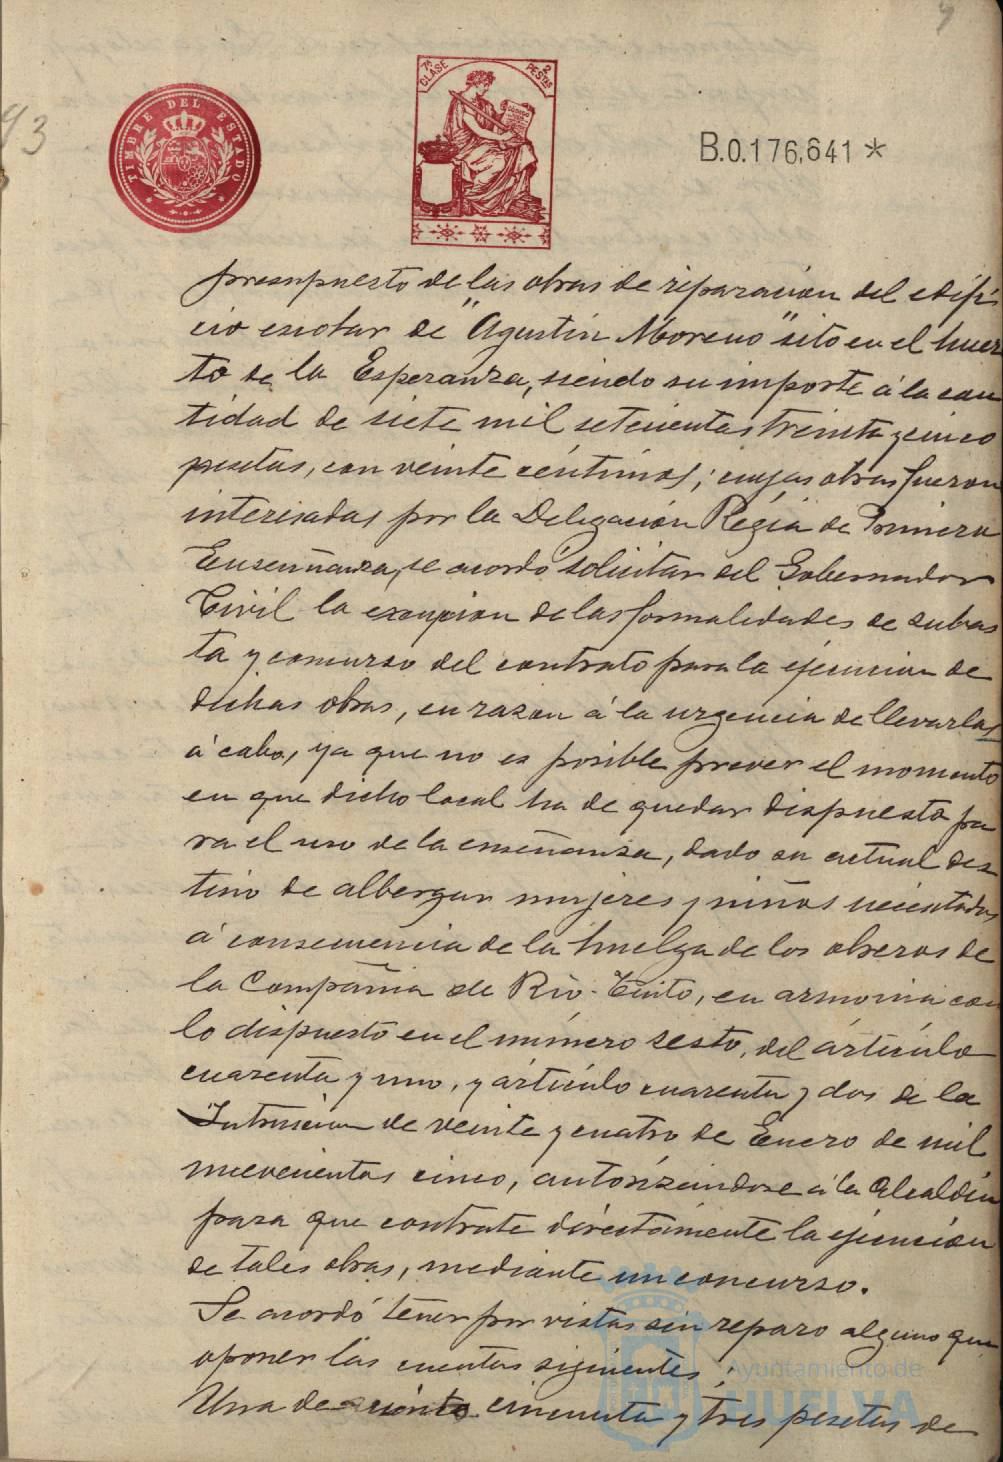 9
93
TIMBRE DEL ESTADO
7ª CLASE 2 PESTAS
B.0.176,641 *
presupuesto de las obras de reparacion del edifi
cio escolar de "Agustin Moreno" sito en el huer
to de la Esperanza, siendo su importe á la can
tidad de siete mil setecientas treinta y cinco
pesetas, con veinte céntimos; cuyas obras fueron
interisadas por la Delegación Regia de Primera
Enseñanza, se acordó solicitar del Gobernador
Civil la excepcion de las formalidades de subas
ta y concurso del contrato para la ejecucion de
dichas obras, en razon á la urgencia de llevarlas
á cabo, ya que no es posible prever el momento
en que dicho local ha de quedar dispuesto pa
ra el uso de la enseñanza, dado su actual des
tino de albergar mujeres y niños necesitados
á consecuencia de la huelga de los obreros de
la Compañia de Rio-Tinto, en armonia con
lo dispuesto en el número sesto, del artículo
cuarenta y uno, y artículo cuarenta y dos de la
Intrucion de veinte y cuatro de Enero de mil
nuevecientos cinco, autorizandose á la Alcaldía
para que contrate diréctamente la ejecución
de tales obras, mediante un concurso.
Se acordó tener por vistas sin reparo alguno que
oponer las cuentas siguientes;
Una de ciento cincuenta y tres pesetas de
Ayuntamiento de
HUELVA